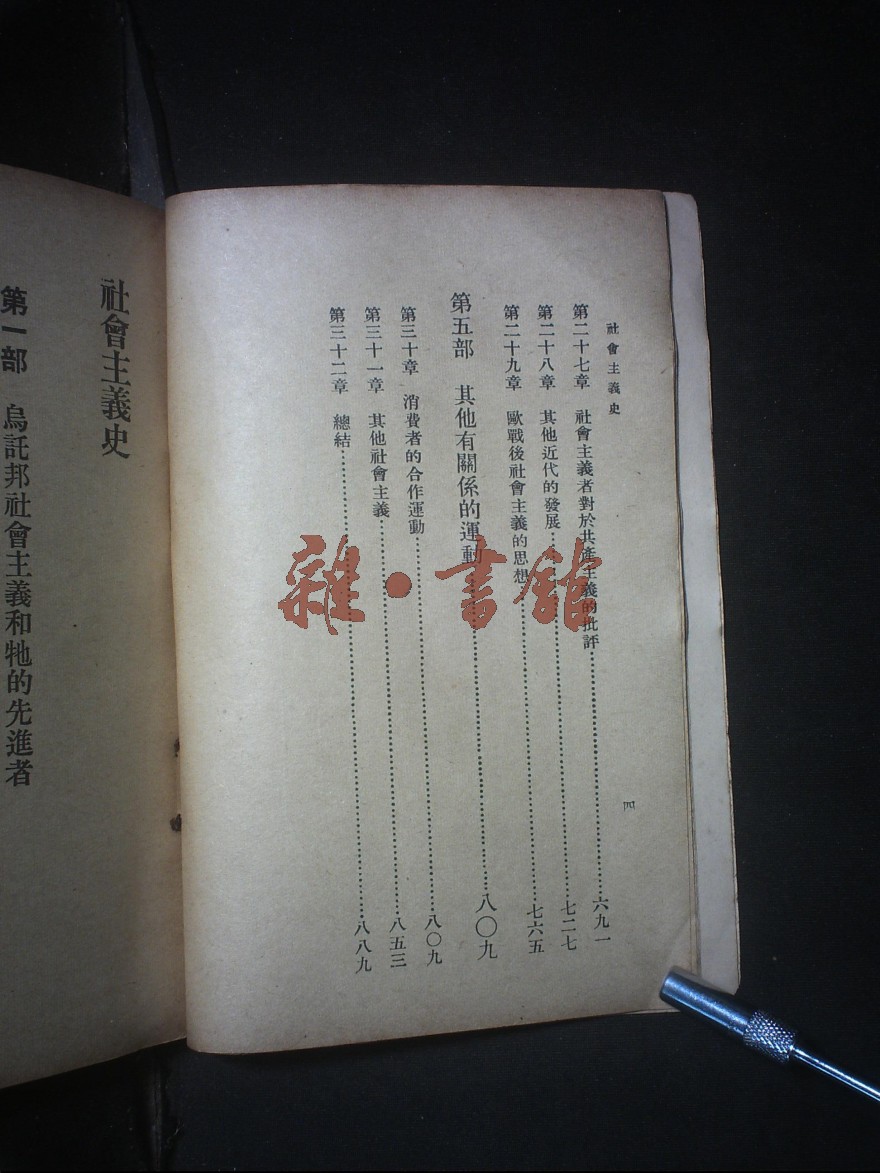 社會主義史
四
第二十七章 社會主義者對於共產主義的批評……六九一
第二十八章 其他近代的發展……七二七
第二十九章 歐戰後社會主義的思想……七六五
第五部 其他有關係的運動……八〇九
第三十章 消費者的合作運動……八〇九
第三十一章 其他社會主義……八五三
第三十二章 總結……八八九
社會主義史
第一部 烏託邦社會主義和牠的先進者
雜·書館